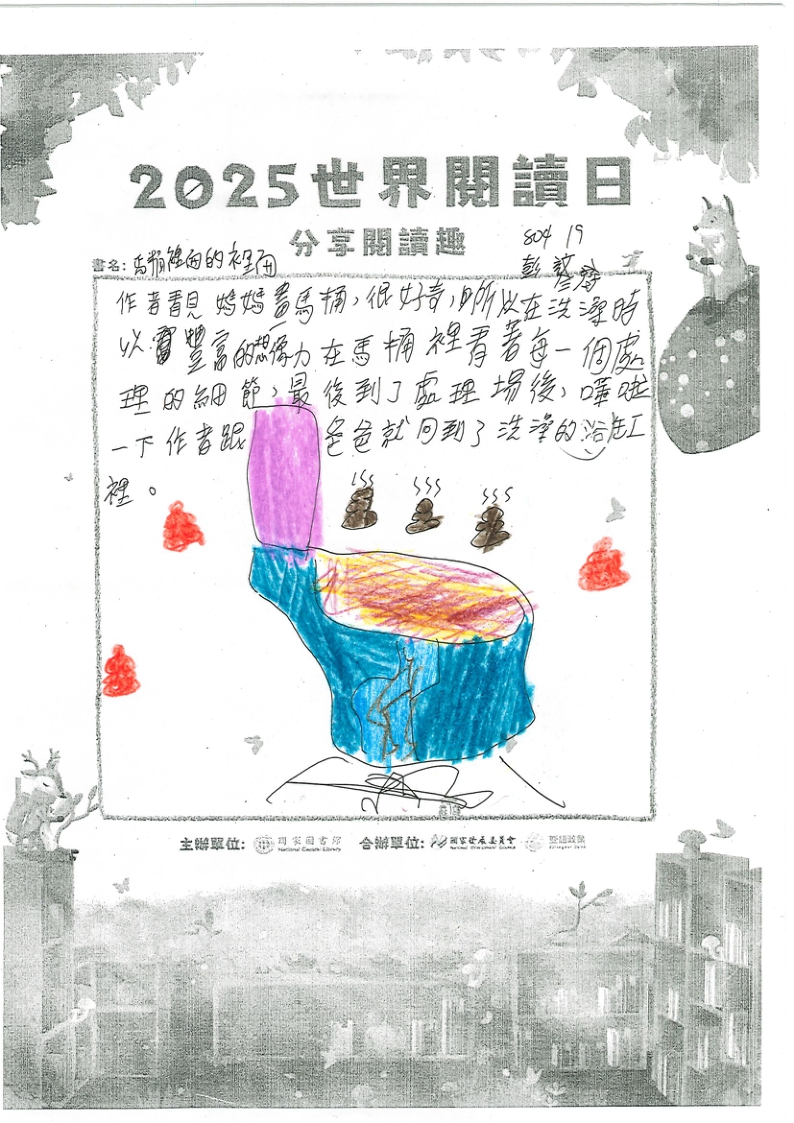 2025世界閱讀日
分享閱讀趣
804 19
書名：馬桶裡面的裡面
彭
作者看見媽媽畫馬桶，很好奇，所以在洗澡時
以豐富的想像力在馬桶裡看著每一個處
理的細節，最後到了處理場後，嘩啦
一下作者跟爸爸就回到了洗澡的浴缸
裡。
主辦單位: 國家圖書館 合辦單位: 國家發展委員會
National Central Library National Development Council